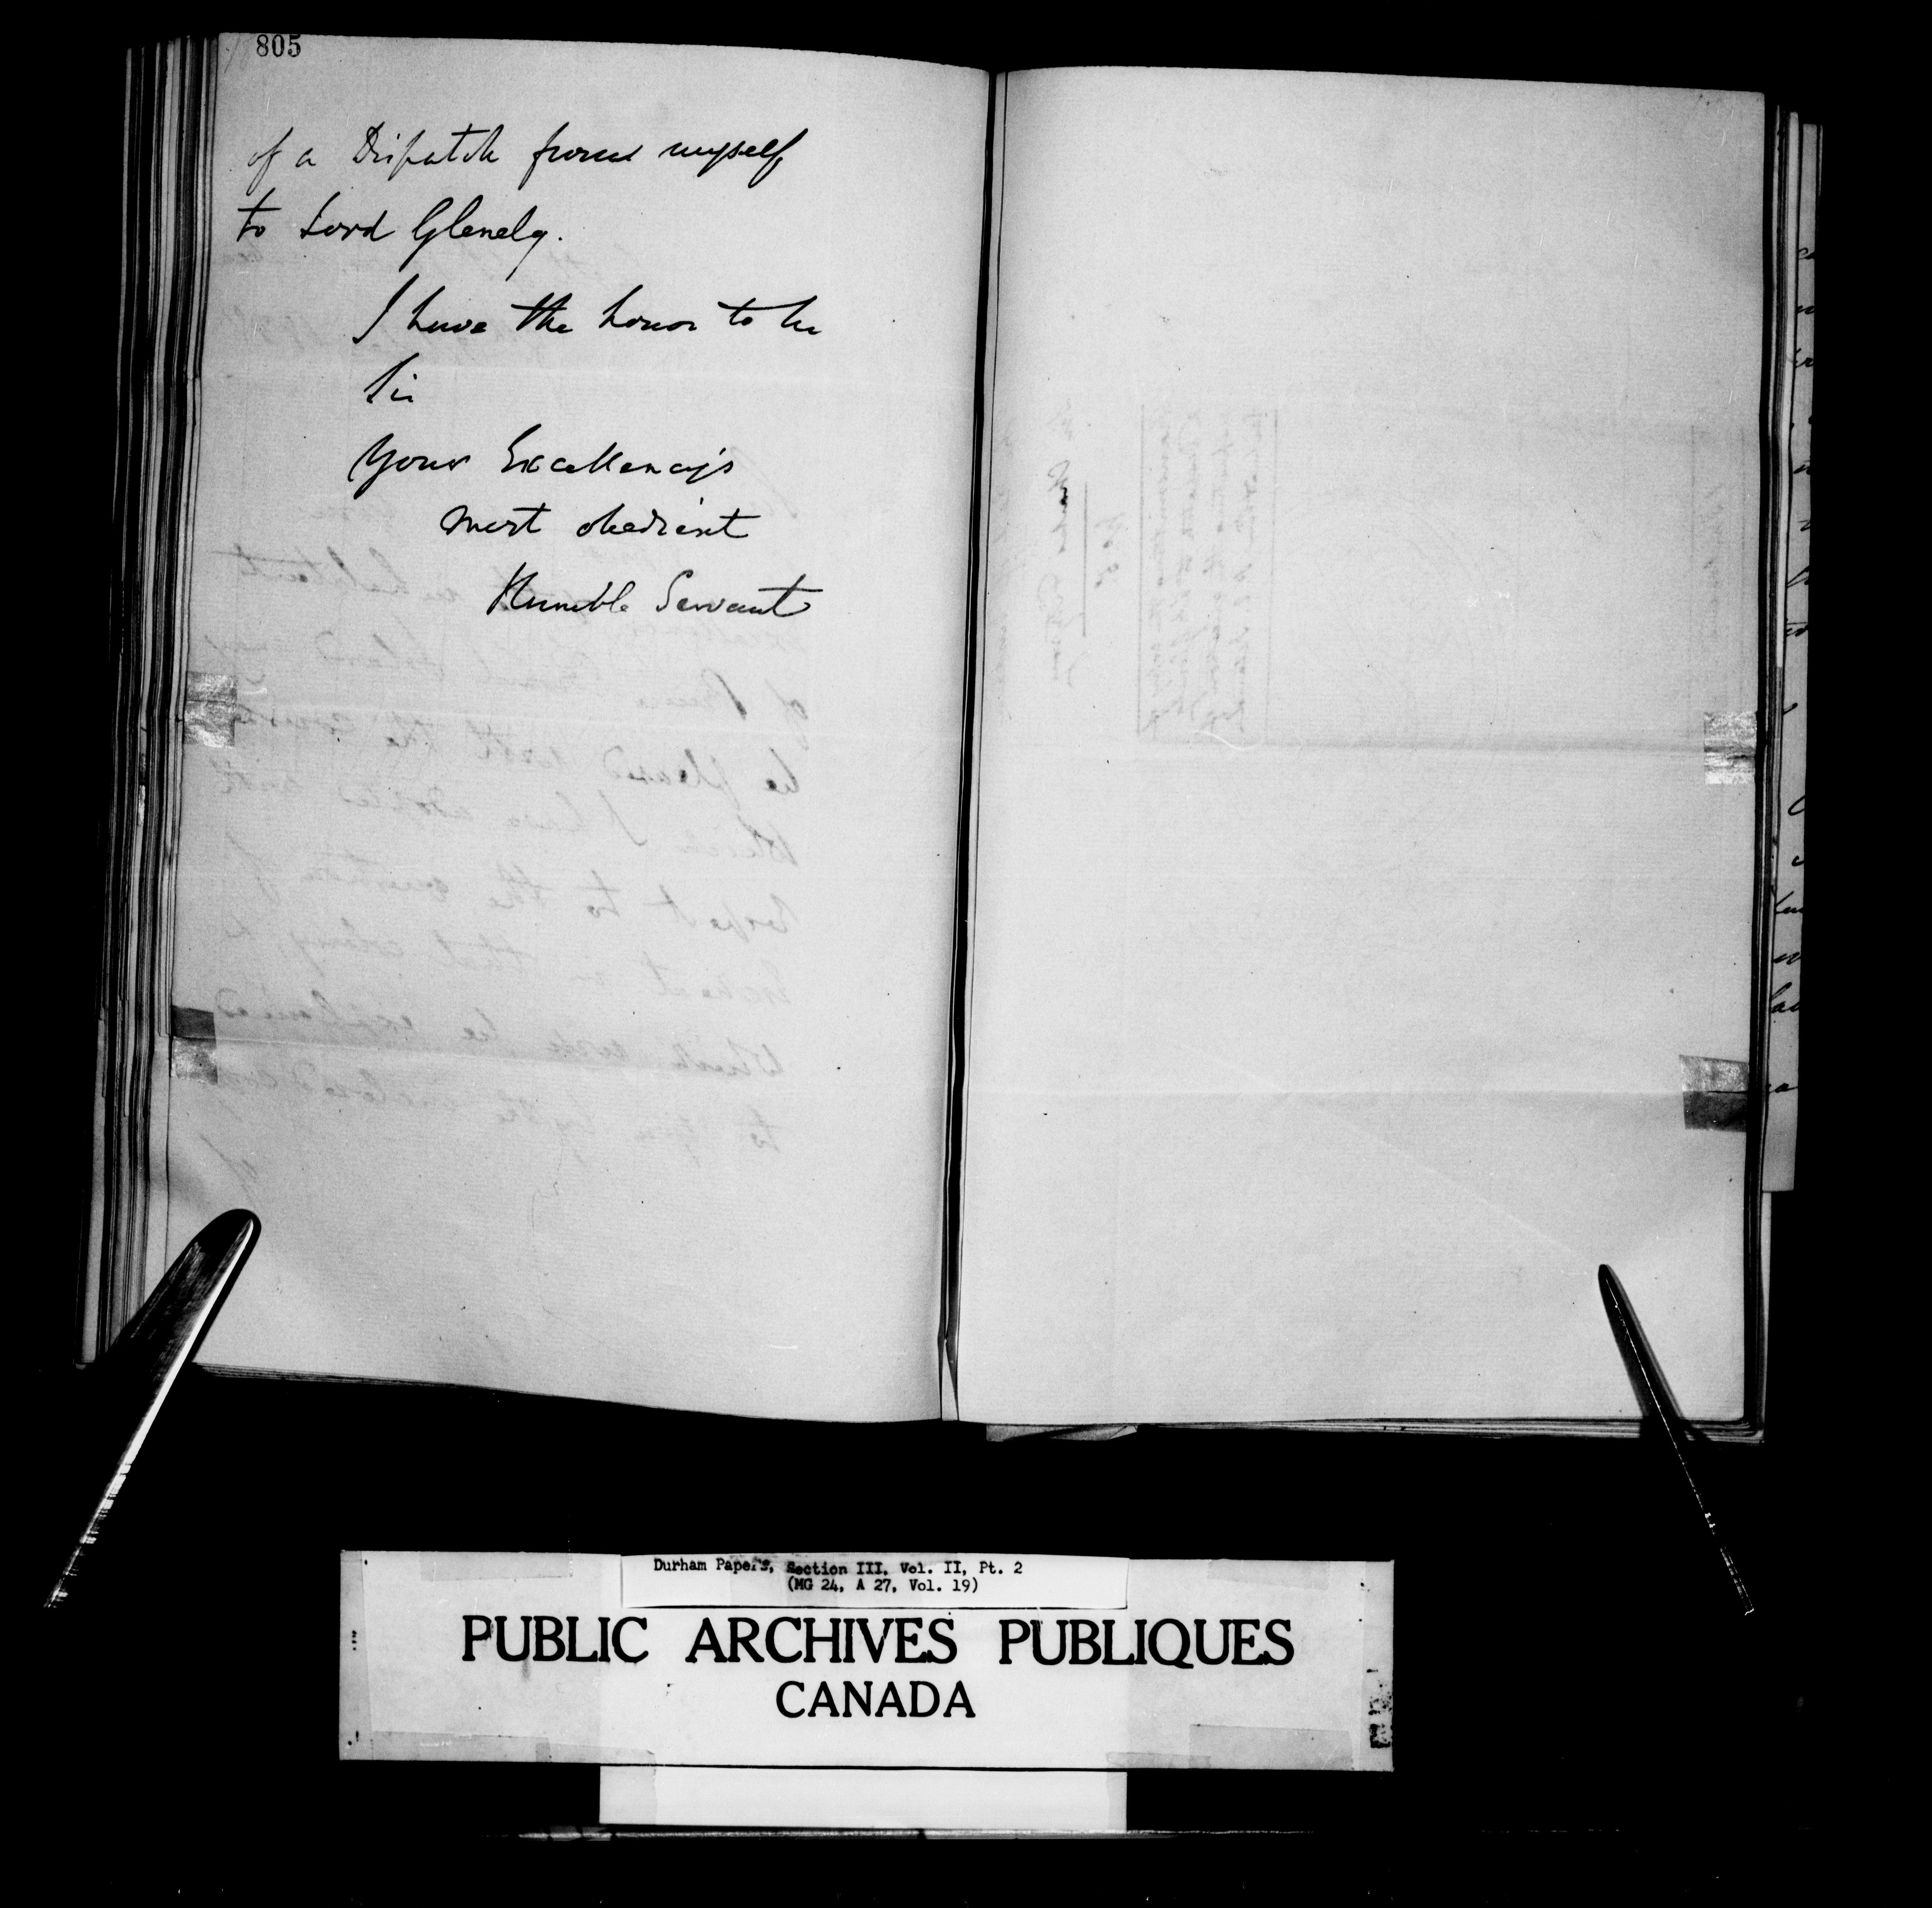 805
of a Dispatch from myself
to Lord Glenelg.
I have the honor to be
Sir
Your Excellency's
most obedient
Humble Servant
Durham Papers, Section III, Vol. II, Pt. 2
(MG 24, A 27, Vol. 19)
PUBLIC ARCHIVES PUBLIQUES
CANADA